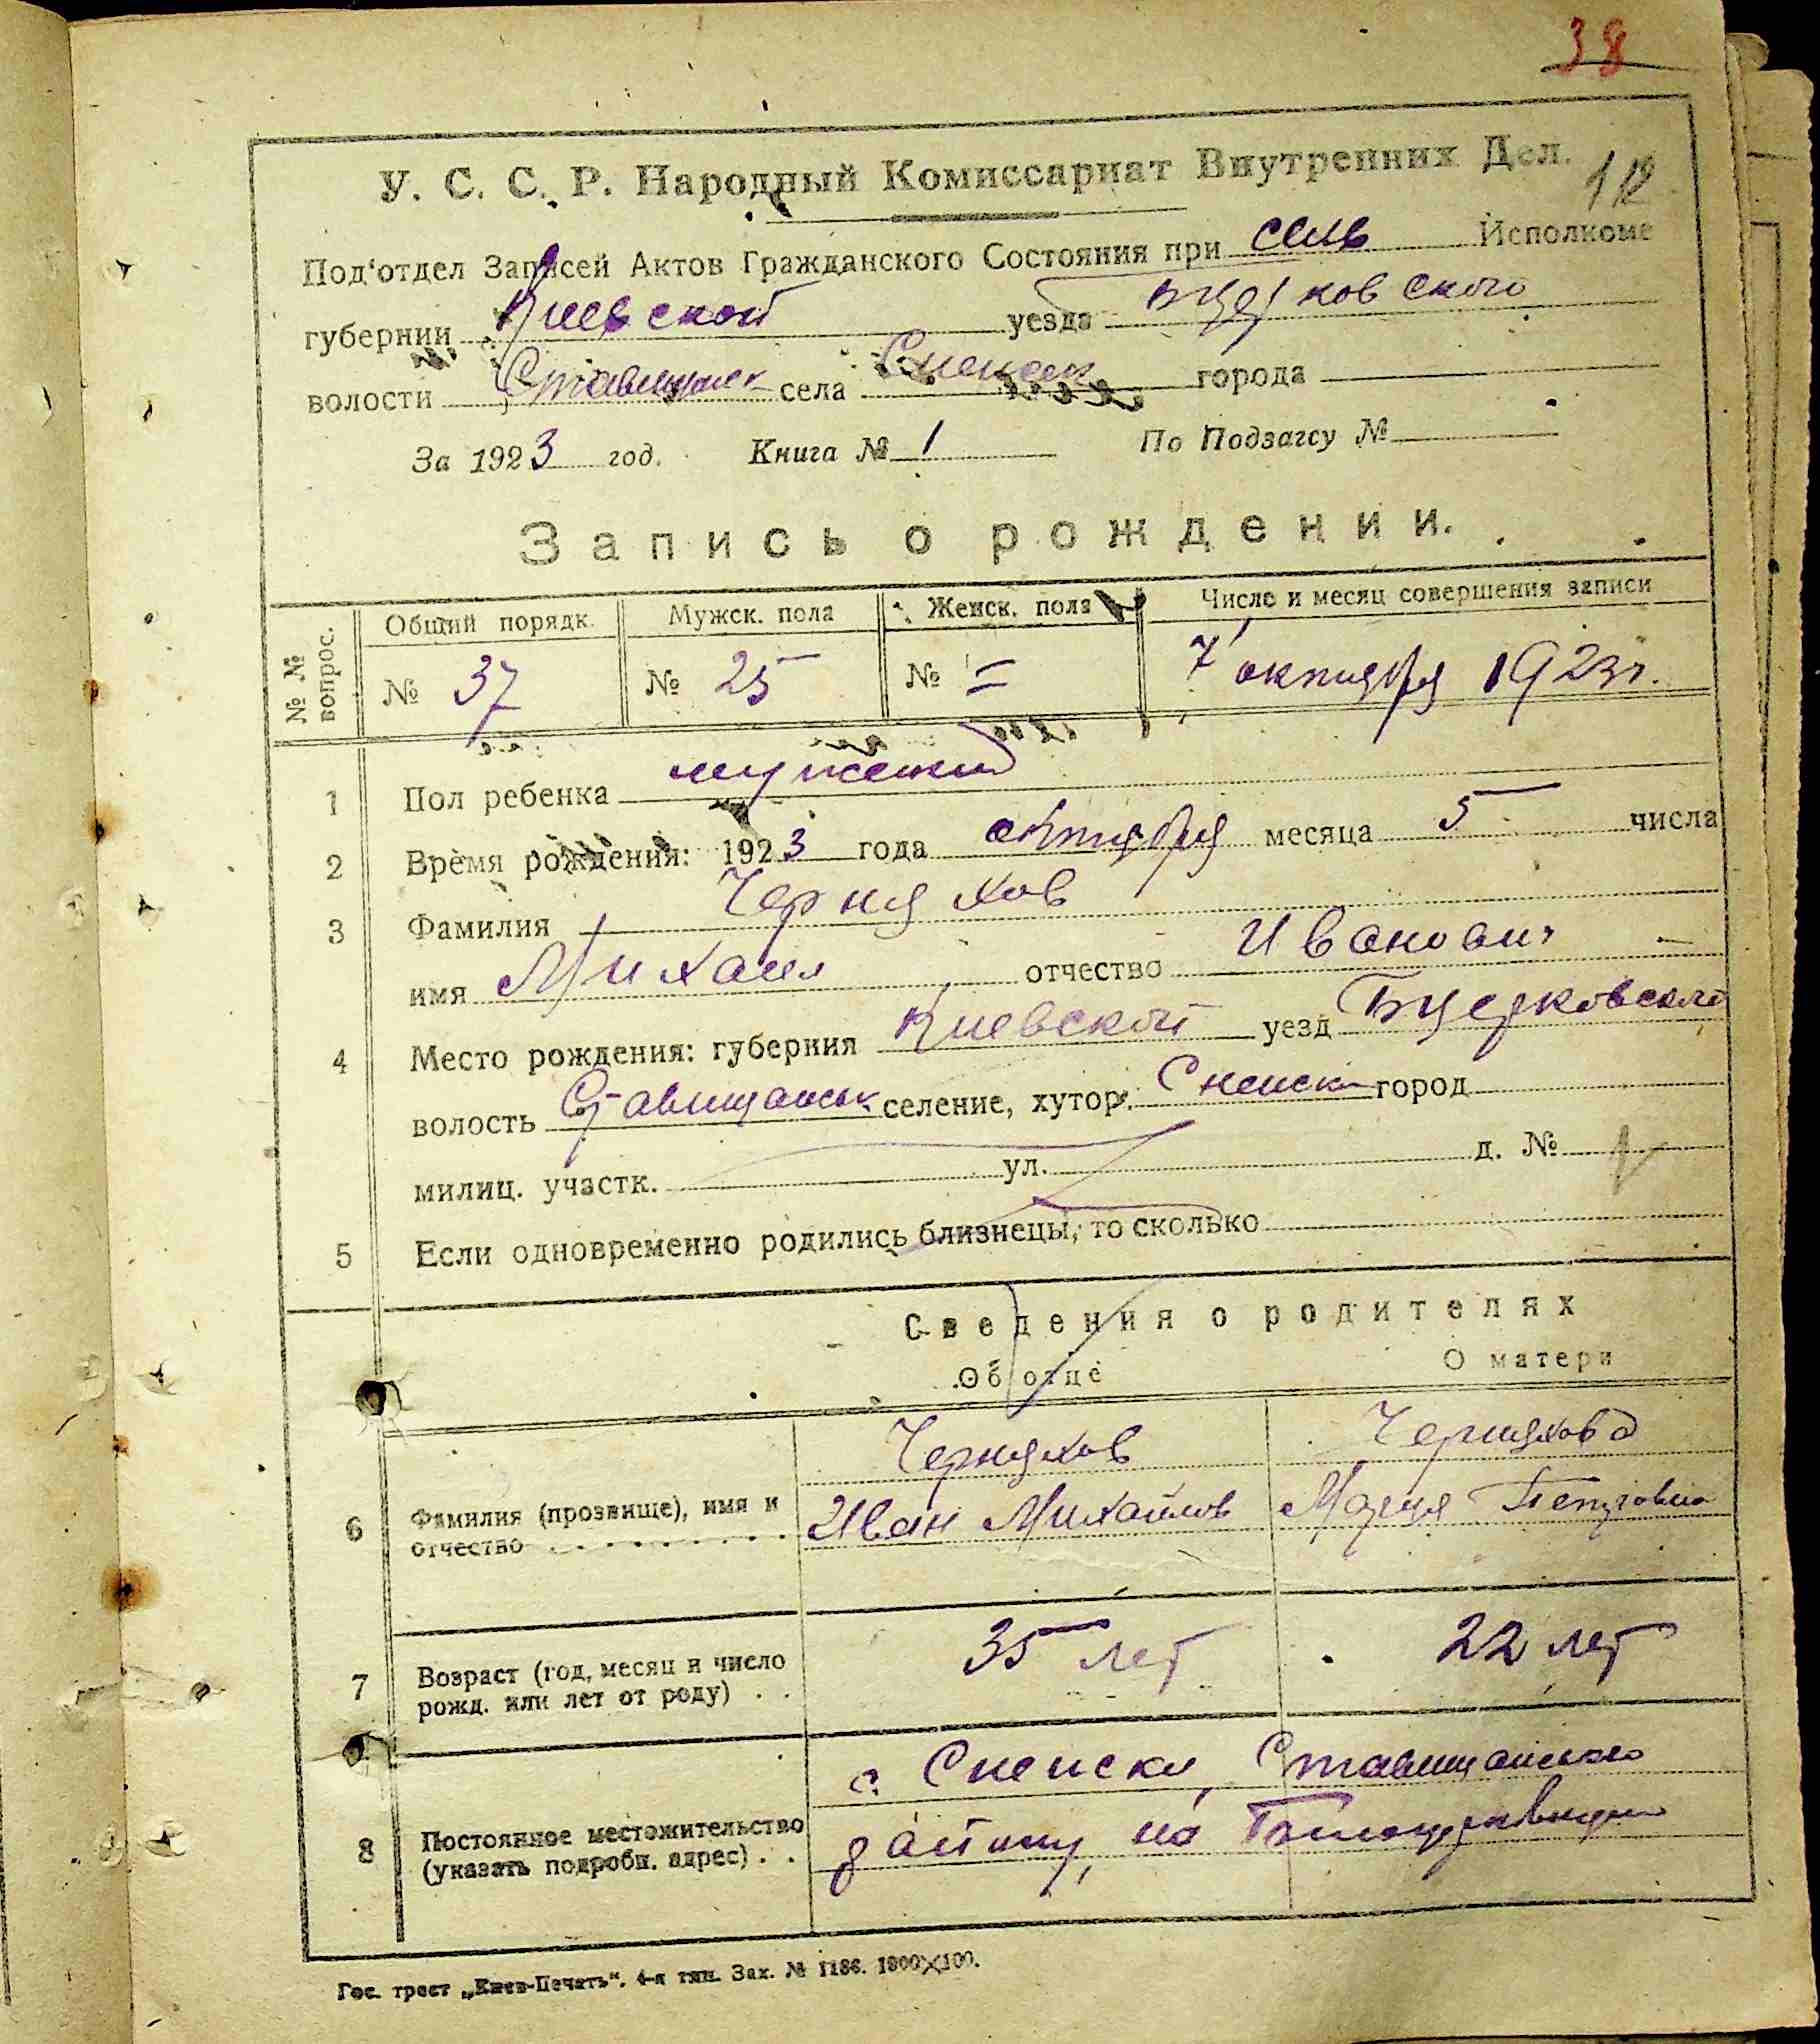 38
У. С. С. Р. Народный Комиссариат Внутренних Дел.
112
Под'отдел Записей Актов Гражданского Состояния при сель Исполкоме
губернии Киевской уезда Бцерковского
волости села города
За 1923 год. Книга № 1 По Подзагсу №
Запись о рождении.
№ № вопрос. Общий порядк. Мужск. пола Женск. пола Число и месяц совершения записи
№ 37 № 25 № = 7 октября 1923 г.
1 Пол ребенка мужский
2 Время рождения: 1923 года октября месяца 5 числа
3 Фамилия Черняхов
имя Михаил отчество Иванович
4 Место рождения: губерния Киевской уезд Бцерковской
волость Ставищанськ селение, хутор. город
милиц. участк. ул. д. №
5 Если одновременно родились близнецы, то сколько
Сведения о родителях
Об отце О матери
Черняхов Черняхова
6 Фамилия (прозвище), имя и отчество Иван Михайлов Мария Петровна
7 Возраст (год, месяц и число рожд. или лет от роду) . . 35 лет 22 лет
8 Постоянное местожительство (указать подробн. адрес) . . с. Ставищанського
району, на
Гос. трест „Киев-Печать“. 4-я тип. Зак. № 1186. 1800×100.